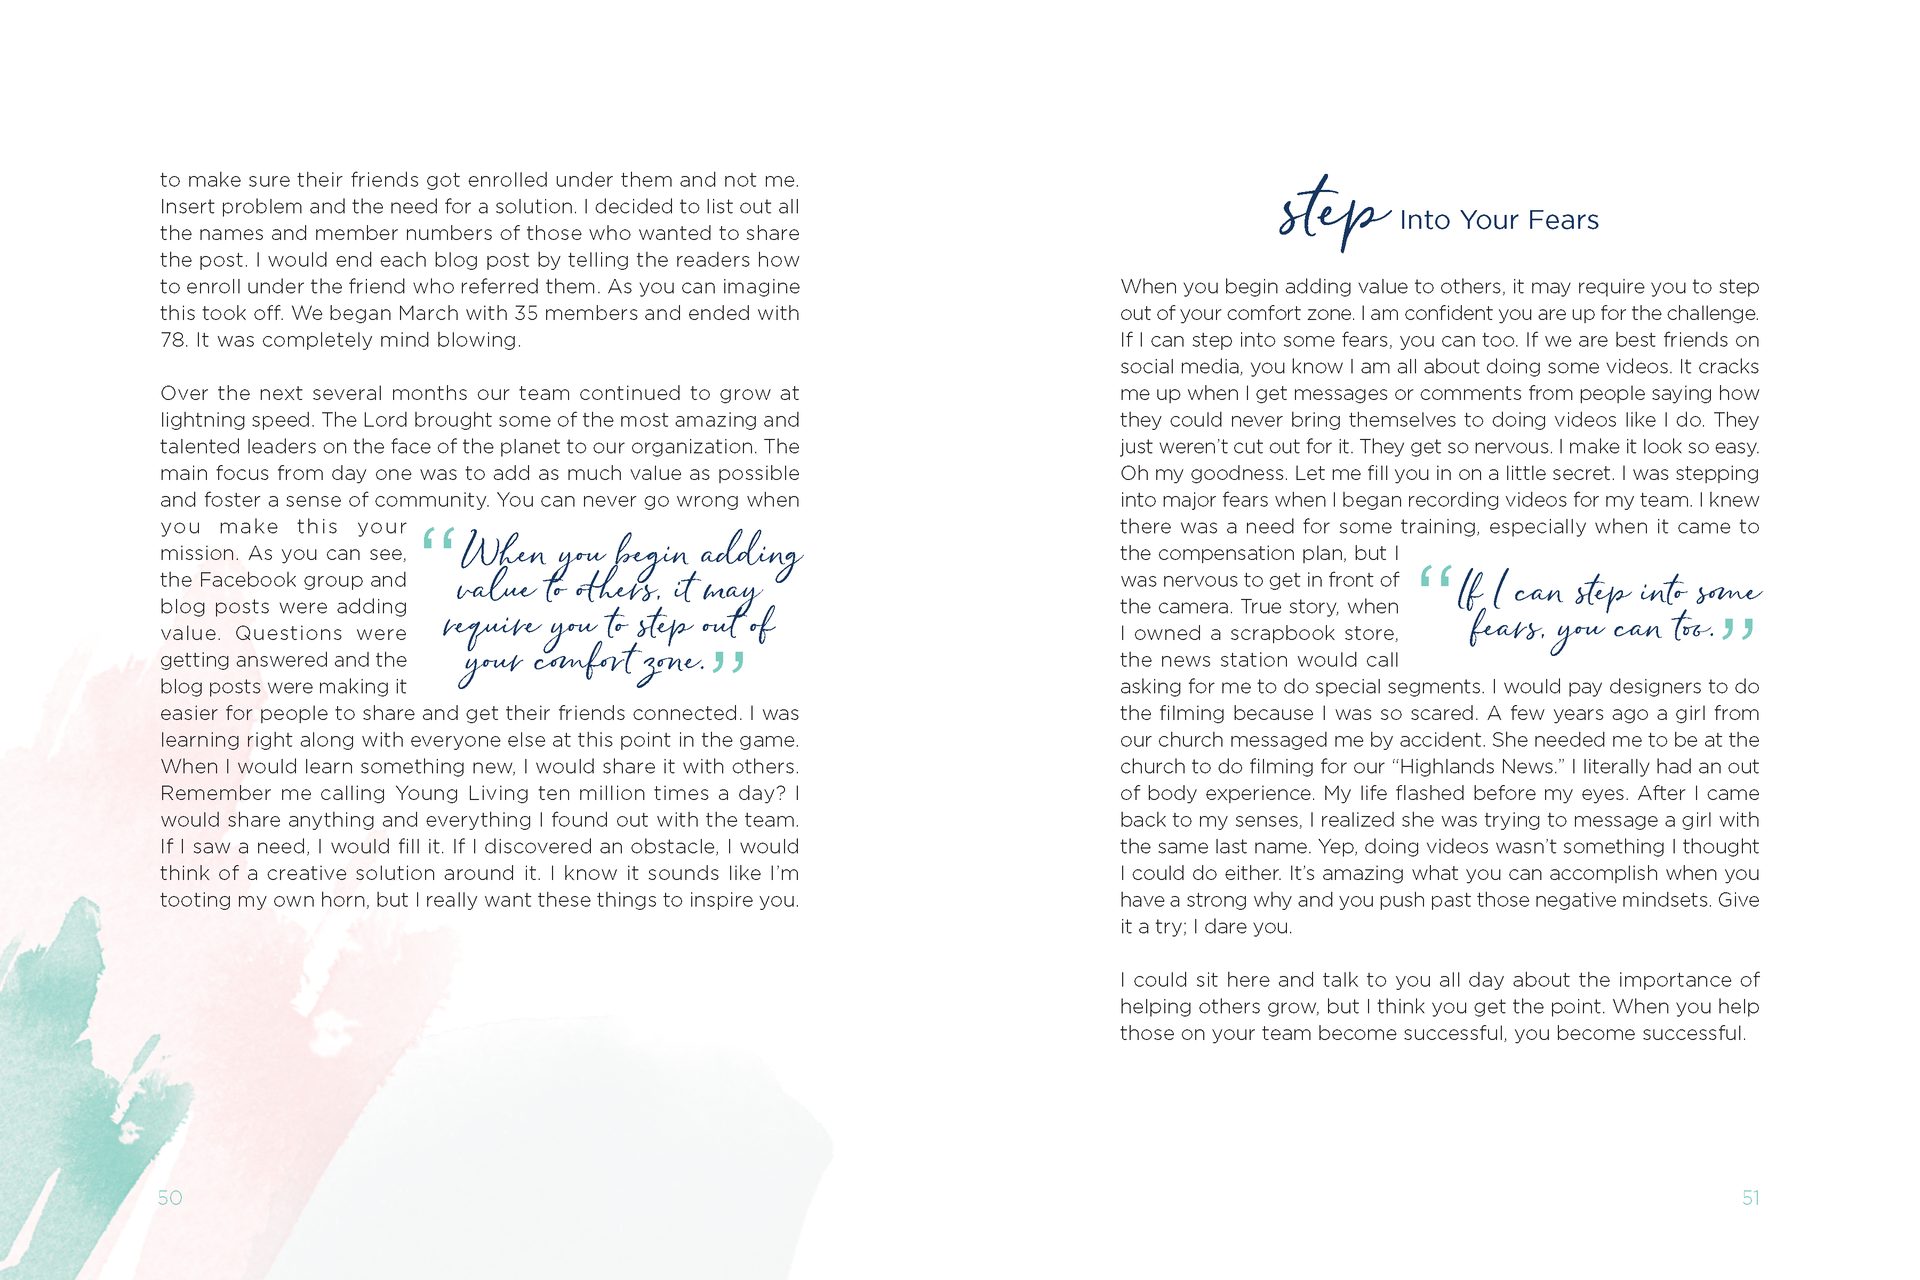 to make sure their friends got enrolled under them and not me.
Insert problem and the need for a solution. I decided to list out all
the names and member numbers of those who wanted to share
the post. I would end each blog post by telling the readers how
to enroll under the friend who referred them. As you can imagine
this took off. We began March with 35 members and ended with
78. It was completely mind blowing.
Over the next several months our team continued to grow at
lightning speed. The Lord brought some of the most amazing and
talented leaders on the face of the planet to our organization. The
main focus from day one was to add as much value as possible
and foster a sense of community. You can never go wrong when
you make this your
mission. As you can see,
the Facebook group and
blog posts were adding
value. Questions were
getting answered and the
blog posts were making it
easier for people to share and get their friends connected. I was
learning right along with everyone else at this point in the game.
When I would learn something new, I would share it with others.
Remember me calling Young Living ten million times a day? I
would share anything and everything I found out with the team.
If I saw a need, I would fill it. If I discovered an obstacle, I would
think of a creative solution around it. I know it sounds like I’m
tooting my own horn, but I really want these things to inspire you.
“When you begin adding
value to others, it may
require you to step out of
your comfort zone.”
50
step Into Your Fears
When you begin adding value to others, it may require you to step
out of your comfort zone. I am confident you are up for the challenge.
If I can step into some fears, you can too. If we are best friends on
social media, you know I am all about doing some videos. It cracks
me up when I get messages or comments from people saying how
they could never bring themselves to doing videos like I do. They
just weren’t cut out for it. They get so nervous. I make it look so easy.
Oh my goodness. Let me fill you in on a little secret. I was stepping
into major fears when I began recording videos for my team. I knew
there was a need for some training, especially when it came to
the compensation plan, but I
was nervous to get in front of
the camera. True story, when
I owned a scrapbook store,
the news station would call
asking for me to do special segments. I would pay designers to do
the filming because I was so scared. A few years ago a girl from
our church messaged me by accident. She needed me to be at the
church to do filming for our “Highlands News.” I literally had an out
of body experience. My life flashed before my eyes. After I came
back to my senses, I realized she was trying to message a girl with
the same last name. Yep, doing videos wasn’t something I thought
I could do either. It’s amazing what you can accomplish when you
have a strong why and you push past those negative mindsets. Give
it a try; I dare you.
“If I can step into some
fears, you can too.”
I could sit here and talk to you all day about the importance of
helping others grow, but I think you get the point. When you help
those on your team become successful, you become successful.
51